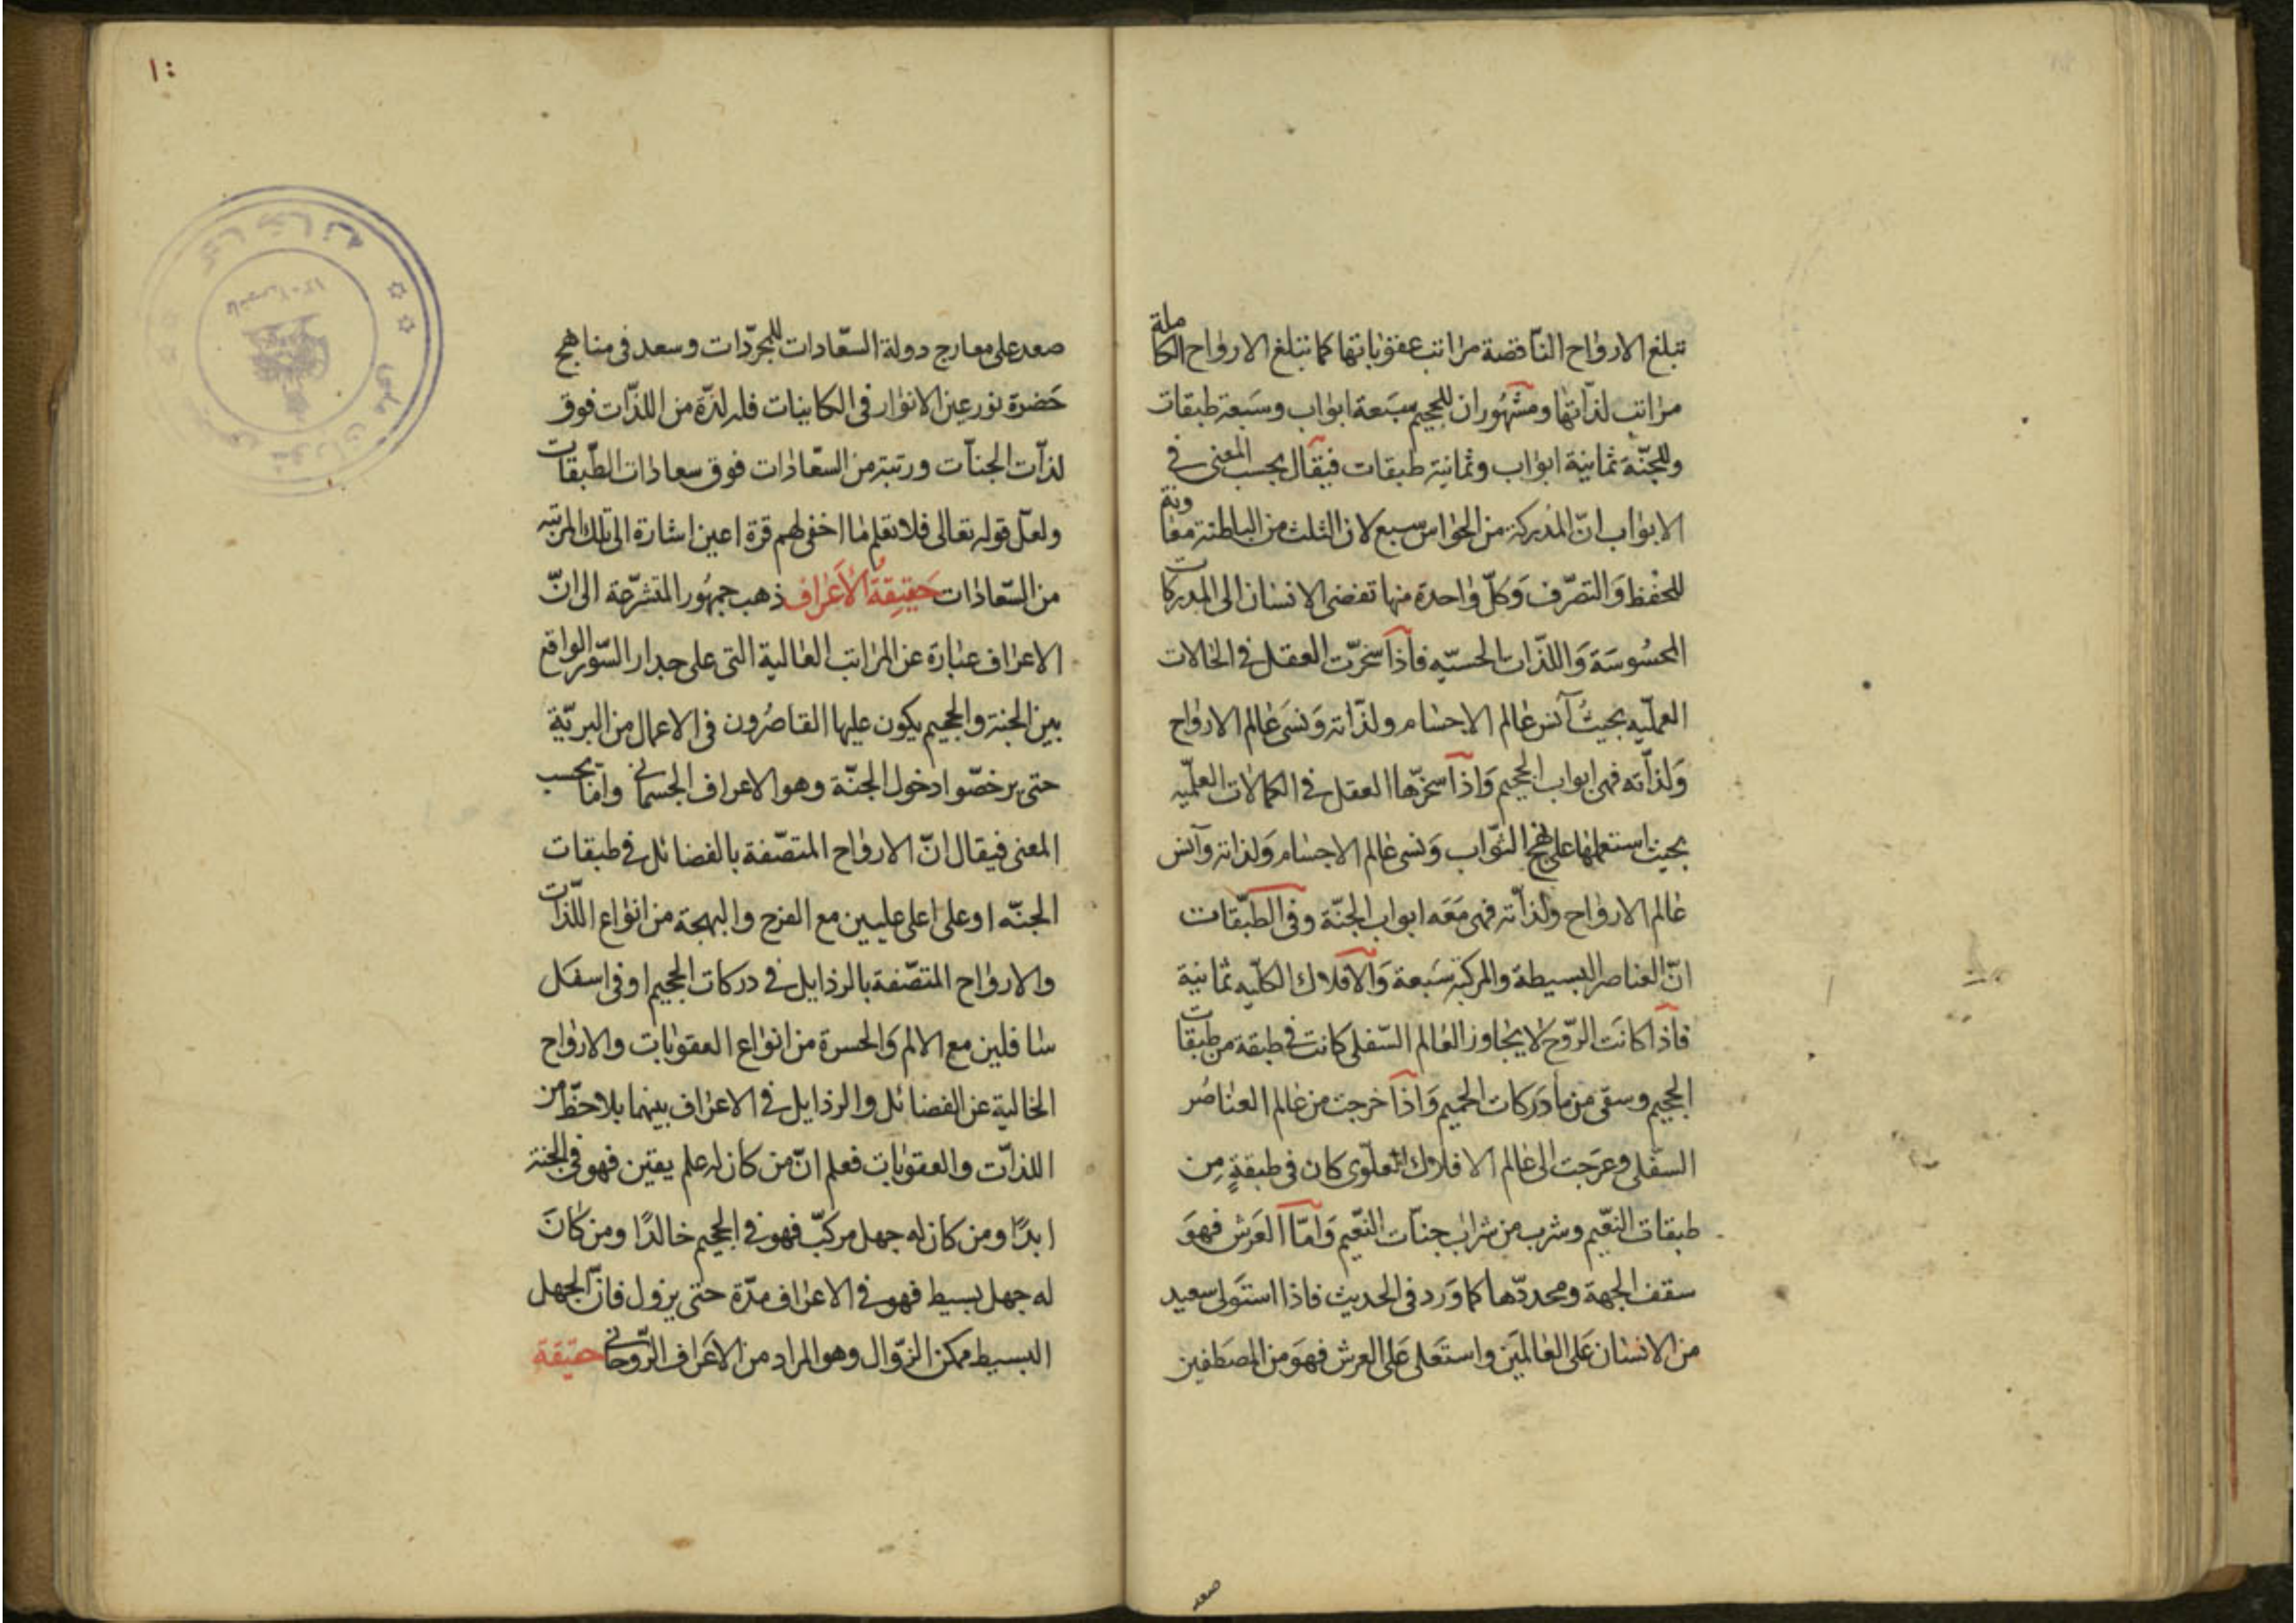 تبلغ الارواح الناقصة مراتب عقوباتها كما تبلغ الارواح الكاملة
مراتب لذاتها ومشهور ان للجحيم سبعة ابواب وسبعة طبقات
وللجنّة ثمانية ابواب وثمانية طبقات فيقال بحسب المعنى في
الابواب انّ المدركة من الحواس سبع لان الثلث من الباطنة معا
للحفظ والتصرّف وكلّ واحدة منها تفضى الانسان الى المدركات
المحسوسة واللذّات الحسيّه فاذا سخرّت العقل في الحالات
العمليّه بحيث آنس عالم الاجسام ولذّاته ونسى عالم الارواح
ولذاته فهى ابواب الجحيم واذا سخرّها العقل في الكمالات العلميّه
بحيث استعملها على نهج الثواب ونسى عالم الاجسام ولذاته وآنس
عالم الارواح ولذاته فهى معه ابواب الجنّة وفى الطبّقات
انّ العناصر البسيطة والمركبة سبعة والافلاك الكليّه ثمانية
فاذا كانت الرّوح لا يجاوز العالم السّفلى كانت في طبقة من طبقات
الجحيم وسقى من ماء دركات الحميم واذا خرجت من عالم العناصر
السّفلى وعرجت الى عالم الافلاك العلّوى كان فى طبقةٍ مِن
طبقات النعّيم وشرب من شراب جنّات النعّيم وامّا العرش فهوَ
سقف الجهة ومحددّها كما ورد فى الحديث فاذا استولى سعيد
من الانسان على العالمين واستعلى على العرش فهو من المصطفين
صعد
١٠
صعد على معارج دولة السّعادات للمجرّدات وسعد فى مناهج
حضرة نور عين الانوار فى الكاينات فله لذّة من اللذّات فوق
لذّات الجنّات ورتبة من السّعادات فوق سعادات الطّبقات
ولعلّ قوله تعالى فلا تعلم ما اخفى لهم قرة اعين اشارة الى تلك المرتبه
من السّعادات حَقيقةُ الأعراف ذهب جمهور المتشرّعة الى انّ
الاعراف عبارة عن المراتب العالية التى على جدار السّور الواقع
بين الجنة والجحيم يكون عليها القاصرون فى الاعمال من البريّة
حتى يرخصّوا دخول الجنّة وهو الاعراف الجسمانى وامّا بحسب
المعنى فيقال انّ الارواح المتصّفة بالفضائل فى طبقات
الجنّه او على اعلى عليين مع الفرح والبهجة من انواع اللذّات
والارواح المتصّفة بالرذايل فى دركات الجحيم او فى اسفل
سافلين مع الالم والحسرة من انواع العقوبات والارواح
الخالية عن الفضائل والرذايل فى الاعراف بينهما بلا حظّ من
اللذّات والعقوبات فعلم انّ من كان له علم يقين فهو فى الجنة
ابدًا ومن كان له جهل مركّب فهو فى الجحيم خالدًا ومن كان
له جهل بسيط فهو فى الاعراف مدّة حتى يزول فانّ الجهل
البسيط ممكن الزوّال وهو المراد من الاعراف الرّوحانى حقيقة